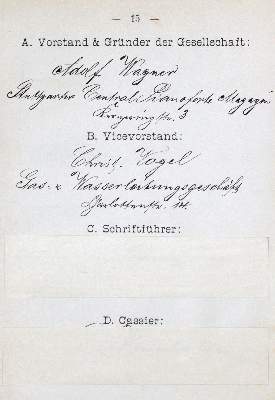 — 15 —
A. Vorstand & Gründer der Gesellschaft:
Adolf Wagner
Stuttgarter Central Pianoforte Magazin
3
B. Vicevorstand:
Christ. Vogel
Gas- & Wasserleitungsgeschäft
Charlottenstr. 14.
C. Schriftführer:
D. Cassier: